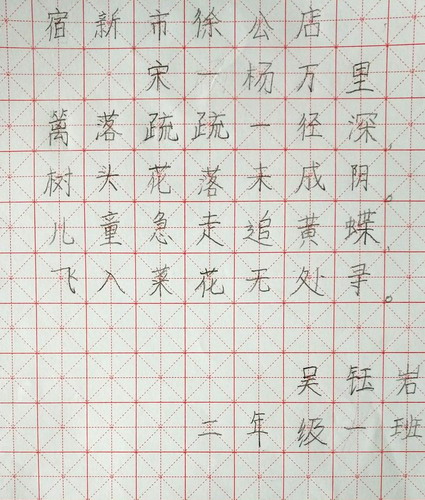 宿新市徐公店
宋一杨万里
篱落疏疏一径深，
树头花落未成阴。
儿童急走追黄蝶，
飞入菜花无处寻。
吴钰岩
二年级一班